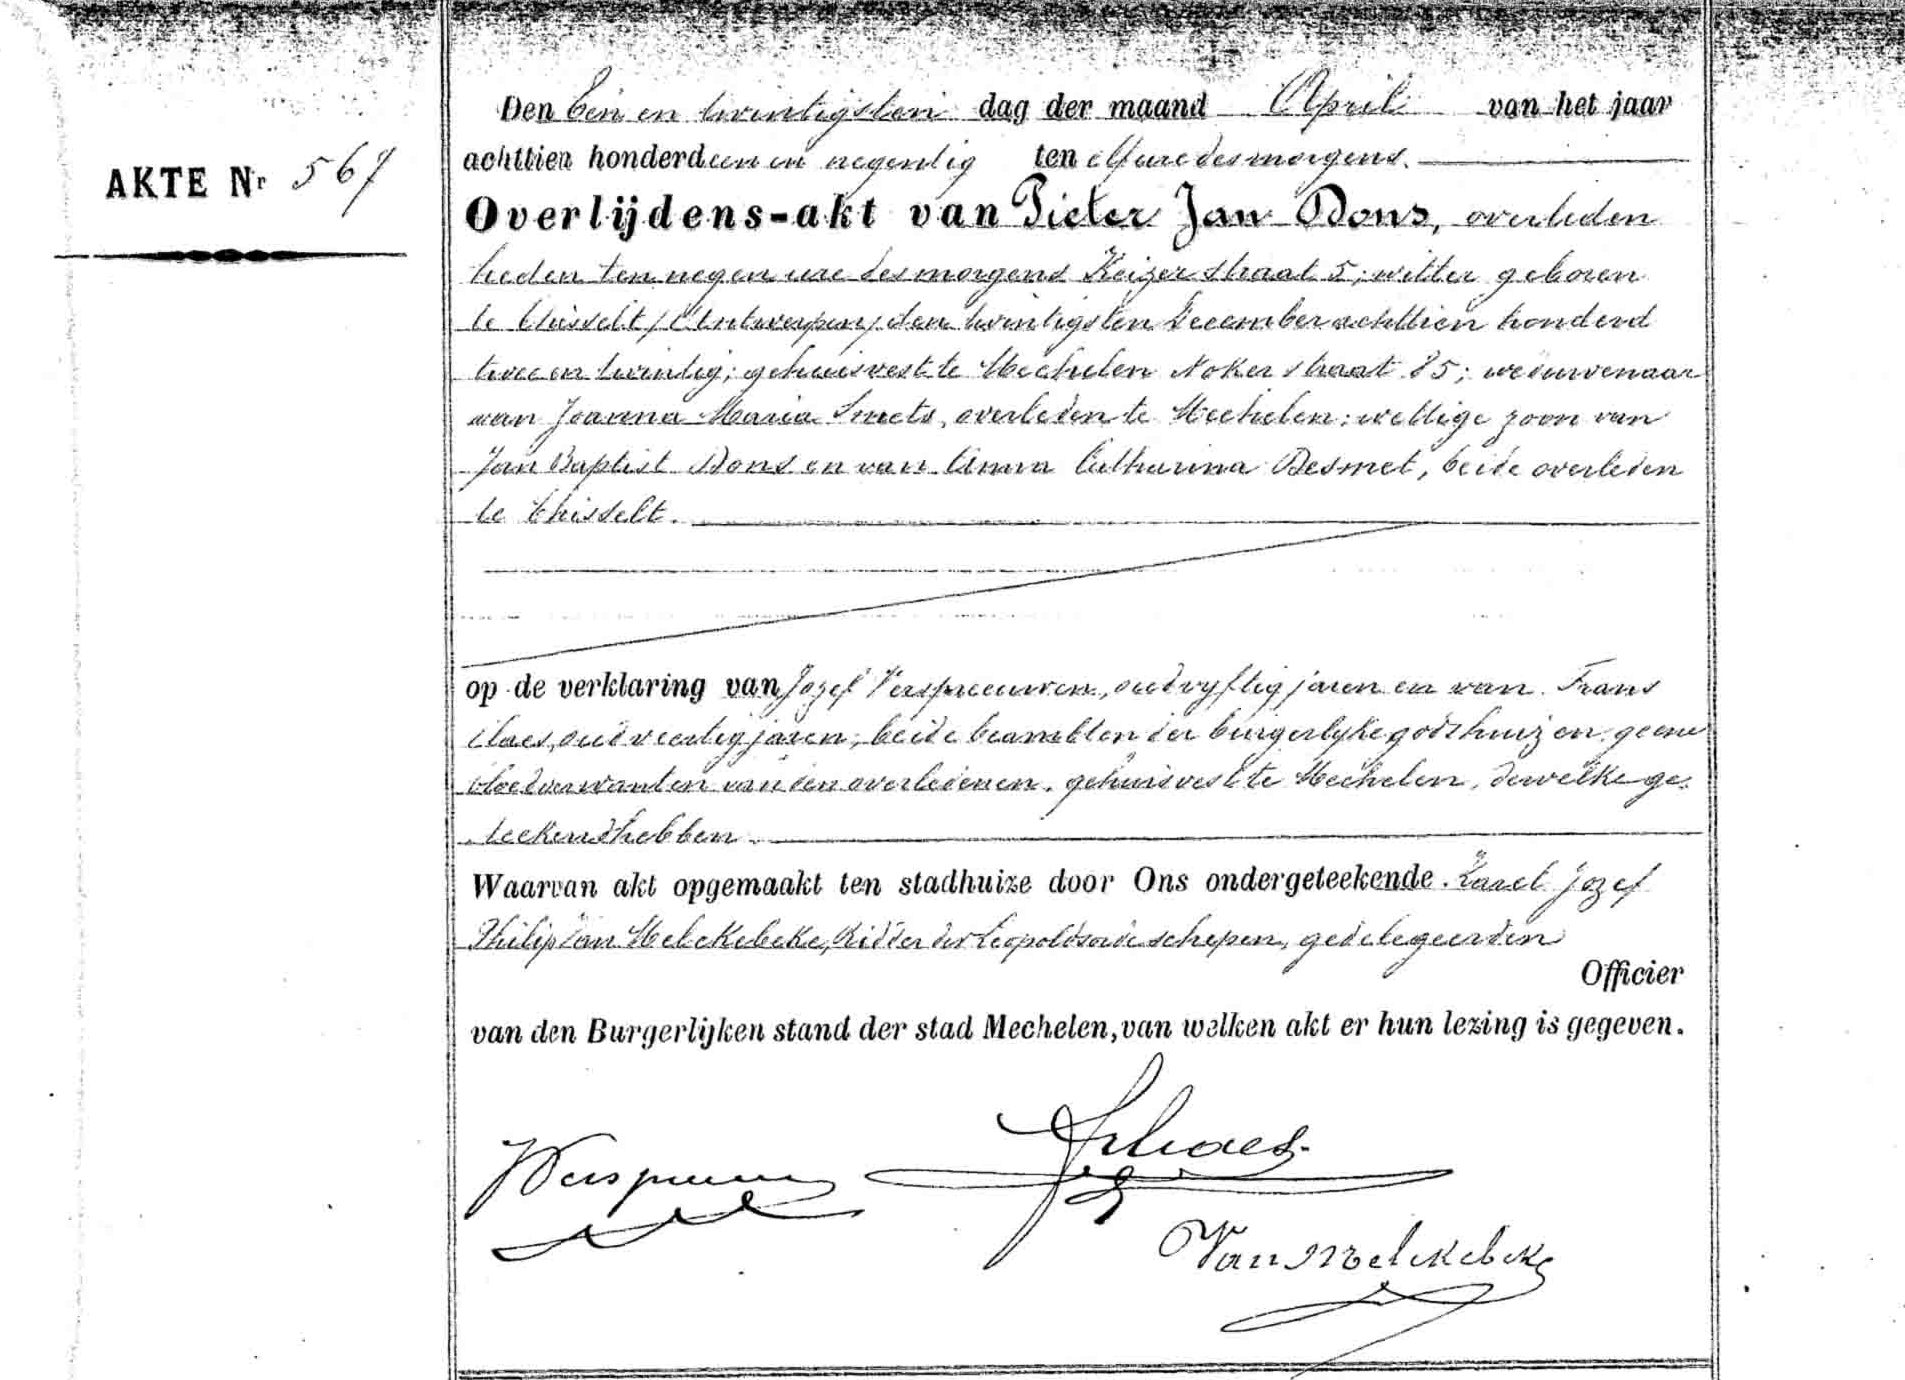 AKTE Nr 567
Den Een en twintigsten dag der maand April van het jaar
achttien honderd een en negentig ten elf ure des morgens.
Overlijdens-akt van Pieter Jan Dons, overleden
heden ten negen ure des morgens Keizerstraat 5; witter geboren
te Thisselt / Antwerpen / den twintigsten December achttien honderd
twee en twintig; gehuisvest te Mechelen Nokerstraat 85; weduwenaar
van Joanna Maria Smets, overleden te Mechelen: wettige zoon van
Jan Baptist Dons en van Anna Catharina Desmet, beide overleden
te Thisselt.
op de verklaring van Jozef Verspreeuwen, oud vyftig jaren en van Frans
Claes, oud veertig jaren, beide beambten der burgerlyke godshuizen, geene
bloedverwanten van den overledenen, gehuisvest te Mechelen, dewelke ge-
teekend hebben
Waarvan akt opgemaakt ten stadhuize door Ons ondergeteekende Karel Jozef
Philip Van Melckebeke, Ridder der Leopoldsorde schepen, gedelegeerden
Officier
van den Burgerlijken stand der stad Mechelen, van welken akt er hun lezing is gegeven.
JVerspreeuwen
Fr Claes
Van Melckebeke